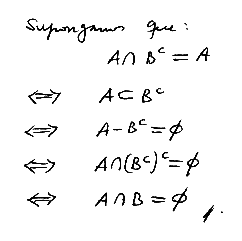 Supongamos que:
A ∩ B^c = A
⟺ A ⊂ B^c
⟺ A - B^c = ϕ
⟺ A ∩ (B^c)^c = ϕ
⟺ A ∩ B = ϕ